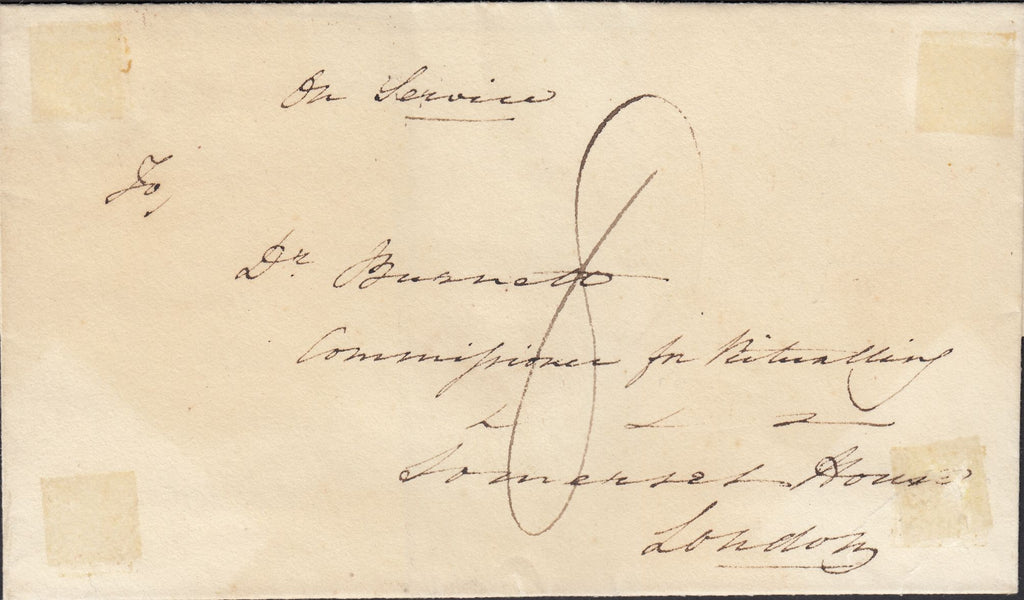 On Service
To,
Dr Burnett
8
Commissioner for Victualling
Somerset House
London